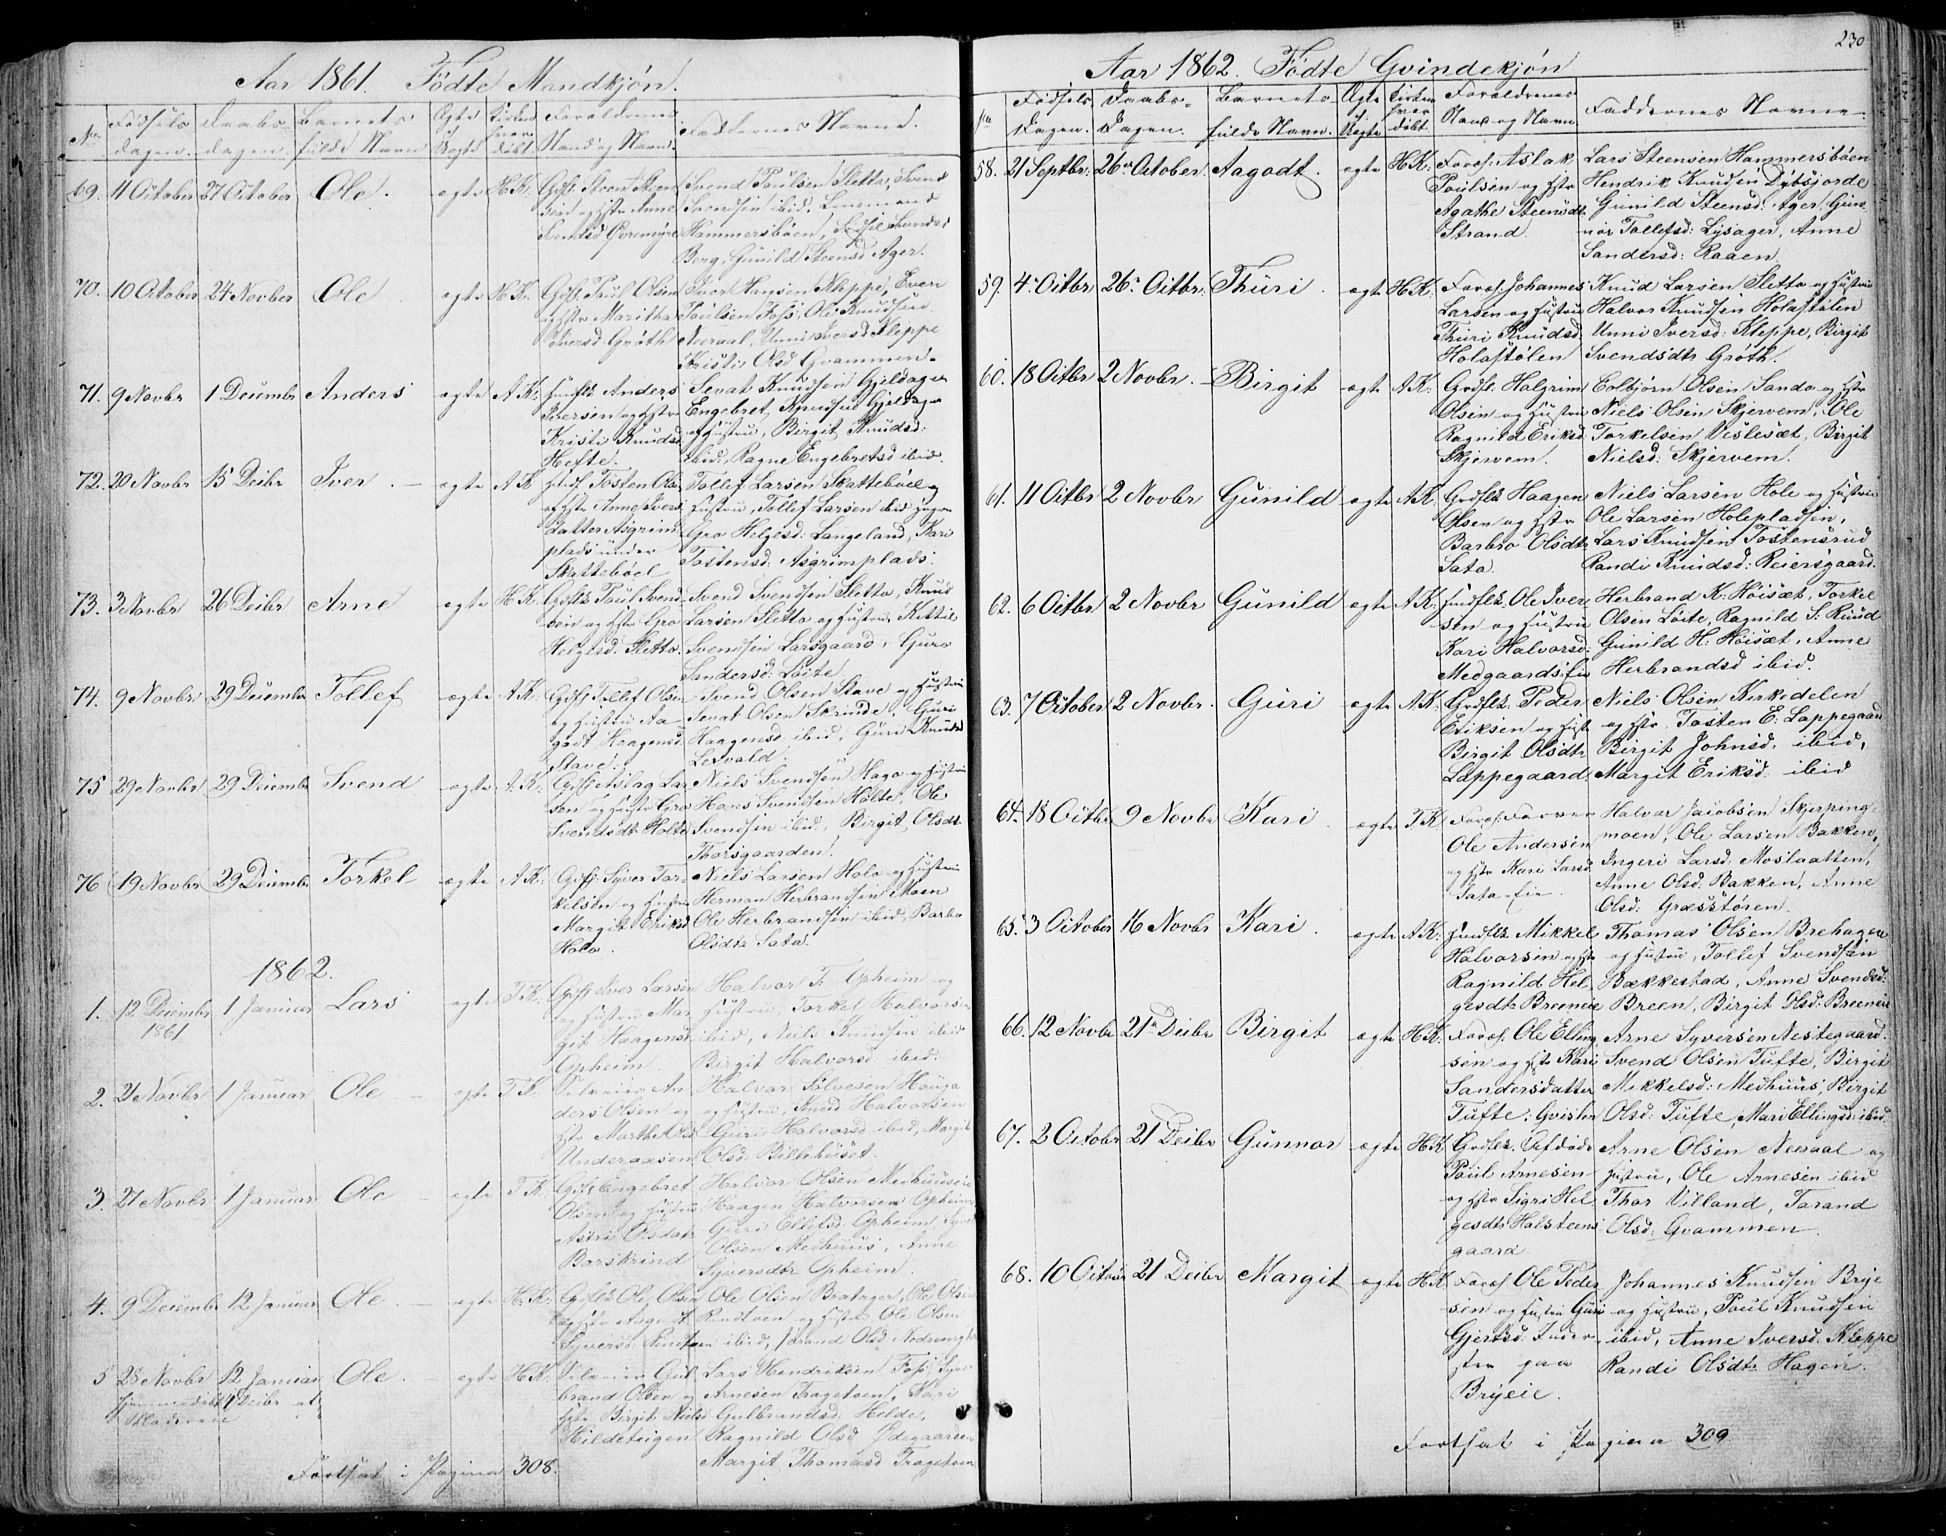 Aar 1861. Fødte Mandkjøn.
No Fødsels dagen. Daabs dagen. Barnets fulde Navn Ægte Uægte Kirken hvor døbt. Forældrenes Stand og Navn. Faddernes Navne.
69. 11 October 27 October Ole. ægte H.K.
Svend Paulsen Sletto, Svend
Svendsen ibid,
Hammersbøen,
Berg, Gunild Steensd Ager.
70. 10 October 24 Novber Ole ægte H.K. Gift Paul Olsen
og Hstr Maritha
Iversd Grøth
Iver Hansen Kleppe, Even
Paulsen Foss, Ole Knudsen
Neeraal, Unni Iversd Kleppe
Kristi Olsd Gvammen.
71. 9 Novbr 1 Decembr Anders ægte A.K. Anders
Iversen og Hstr
Kristi Knudsd
Hefte.
Sevat Knudsen Gjeldager
Engebret Knudsen Gjeldager
og Hustru, Birgit Knudsd:
ibid, Ragne Engebretsd ibid.
72. 20 Novbr 15 Decbr Iver ægte A.K. Tosten Ols
og Hstr Anne Ivers
datter Asgrims
plads under
Skattebøel
Tollef Larsen Skattebøel og
Hustru, Tollef Larsen ibid
Gro Helgesd: Langeland, Kari
Tostensd: Asgrimplads.
73. 3 Novbr 26 Decbr Arne ægte H.K. Paul Svend
sen og Hstr Gro
Helgesd. Sletto.
Svend Svendsen Sletto, Knud
Larsen Sletto og Hustru, Kittil
Svendsen Larsgaard, Guro
Sandersd: Løite.
74. 9 Novbr 29 Decembr Tollef ægte A.K. Gift Tollef Olsen
og Hustru Aa-
godt Haagensd
Stave.
Svend Olsen Stave og Hustru
Sevat Olsen Skrinde, Guri
Haagensd: ibid, Guri Knudsd
Lesvald.
75 29 Novbr 29 Decembr Svend ægte A.K. Gift Aslag Lar
sen og Hustr Gro
Svendsdt Holto
Niels Svendsen Hago og Hustru
Hans Svendsen Holte, Ole
Svendsen ibid, Birgit Olsdt
Thorsgaarden.
76 19 Novbr 29 Decembr Torkel ægte A.K. Gift Syver Tor-
kelsen og Hustru
Margit Eriksd
Holo.
Niels Larsen Holo og Hustru
Herman Herbrandsen Moen
Ole Herbrandsen ibid, Barbro
Olsdtr Sata.
1862.
1. 12 Decembr 1861 1 Januar Lars ægte T.K. Gift Iver Larsen
og Hustru Mar
git Haagensd
Opheim
Halvor T. Opheim og
Hustru, Torkel Halvorsen
ibid, Niels Knudsen ibid
Birgit Halvorsd ibid.
2. 21 Novbr 1 Januar Ole ægte T.K. An
ders Olsen og
Hstr Marthe
Underaasen
Halvor Sølvesen Hauga
og Hustru, Knud Halvorsen
Guri Halvorsd ibid, Margit
Olsd. Billehuset.
3. 27 Novbr 1 Januar Ole ægte T.K. Gift Engebret
Olsen og Hustru
Astri Olsdatr
Barskrind
Halvor Olsen Medhuuseie
Haagen Halvorsen Opheim
Guri Ellefsd. Opheim,
Olsen Medhuus, Anne
Syversdtr Opheim.
4. 9 Decembr 12 Januar Ole. ægte H.K. Ole Olsen
og Hstr Aagodt
Syversd: Rindtoen
Ole Olsen Bratager, Ole Olsen
Rindtoen og Hustr, Ole Olsen
ibid, Jørand Olsd
5 28 Novbr
hjemmedøbt 1 Decbr af
12 Januar Ole. ægte H.K. Gul
brand Olsen og
Hstr Birgit Nielsd
Hildeteigen
Lars Hendriksen Foss, Syver
Arnesen Tragetoen, Kari
Gulbrandsd. Hilde,
Ragnild Olsd Ødegaarden
Margit Thomasd Tragetoen
Fortsat i Pagina 308.
230
Aar 1862. Fødte Qvindekjøn
No Fødsels Dagen. Daabs Dagen. Barnets fulde Navn. Ægte Uægte Kirken hvor døbt. Forældrenes Stand og Navn Faddernes Navne
58. 21 Septbr. 26 October. Aagodt. ægte H.K: Aslak
Paulsen og Hstr
Agathe Steensdt
Strand.
Lars Steensen Hammersbøen
Hendrik Knudsen Dybsjorde
Gunild Steensd: Ager, Gun-
nor Tollefsd: Lysager, Anne
Sandersd: Raaen.
59. 4 Octbr 26 Octbr. Thuri ægte H.K: Johannes
Larsen og Hustru
Thuri Knudsd
Holastølen
Knud Larsen Sletto og Hustru
Halvor Knudsen Holastølen
Unni Iversd: Kleppe, Birgit
Svendsdtr Grøth.
60. 18 Octbr 2 Novbr. Birgit ægte A.K: Halgrim
Olsen og Hustru
Ragnild Eriksd
Skjervem.
Eolbjørn Olsen Sando og Hstr
Niels Olsen Skjervem, Ole
Torkelsen Veslesæt, Birgit
Nielsd: Skjervem.
61. 11 Octbr 2 Novbr Gunild ægte A.K: Haagen
Olsen og Hstr
Barbro Olsdtr
Sata
Niels Larsen Hole og Hustru
Ole Larsen Holepladsen,
Lars Knudsen Tostensrud
Randi Knudsd: Reiersgaard.
62. 6 Octbr 2 Novbr Gunild ægte A.K: Ole Iver
sen og Hustru
Kari Halvorsd:
Medgaardseie
Herbrand K: Høisæt, Torkel
Olsen Løite, Ragnild S: Ruud
Gunild H: Høisæt, Anne
Herbrandsd ibid.
63. 7 October 2 Novbr. Guri ægte A.K: Peder
Eriksen og Hustr
Birgit Olsdtr
Lappegaard
Niels Olsen Kirkedelen
og Hstr, Tosten E: Lappegaard
Birgit Johnsd. ibid,
Margit Eriksd. ibid
64. 18 Octbr 9 Novbr Kari ægte T.K.
Ole Andersen
og Hstr Kari Larsd
Sata-Eie.
Halvor Jacobsen Skjerping
moen, Ole Larsen Bakken,
Ingeri Larsd: Moslaatten,
Anne Olsd: Bakken, Anne
Olsd: Græsstøren.
65. 3 October 16 Novbr Kari ægte A.K: Mikkel
Halvorsen og Hstr
Ragnild Hel
gesdtr Breeneie
Thomas Olsen Brehagen
og Hustru, Tollef Svendsen
Bækkestad, Anne Svendsd:
Breen, Birgit Olsd: Breeneie
66. 12 Novbr 21 Decbr Birgit ægte H.K: Ole Elling
sen og Hstr Kari
Sandersdatter
Tufte: Qvisten
Arne Syversen Nestegaard.
Svend Olsen Tufte, Birgit
Mikkelsd: Medhuus, Birgit
Olsd: Tufte, Mari Ellingsd: ibid
67. 2 Octobr 21 Decbr Gunnor ægte H.K
Paul Arnesen
og Hstr Sigri Hel
gesdtr Halsteens
gaard.
Arne Olsen Neeraal og
Hustru, Ole Arnesen ibid
Thor Villand, Jørand
Olsd: Gvammen.
68. 10 Octobr 21 Decbr Margit ægte H.K Ole Peder
sen og Hustru Guri
Gjertsd. Inder
ster paa
Bryeie.
Johannes Knudsen Brye
og Hustru, Poul Knudsen
ibid, Anne Iversd: Kleppe
Randi Olsdtr Hagen.
Fortsat i Pagina 309.